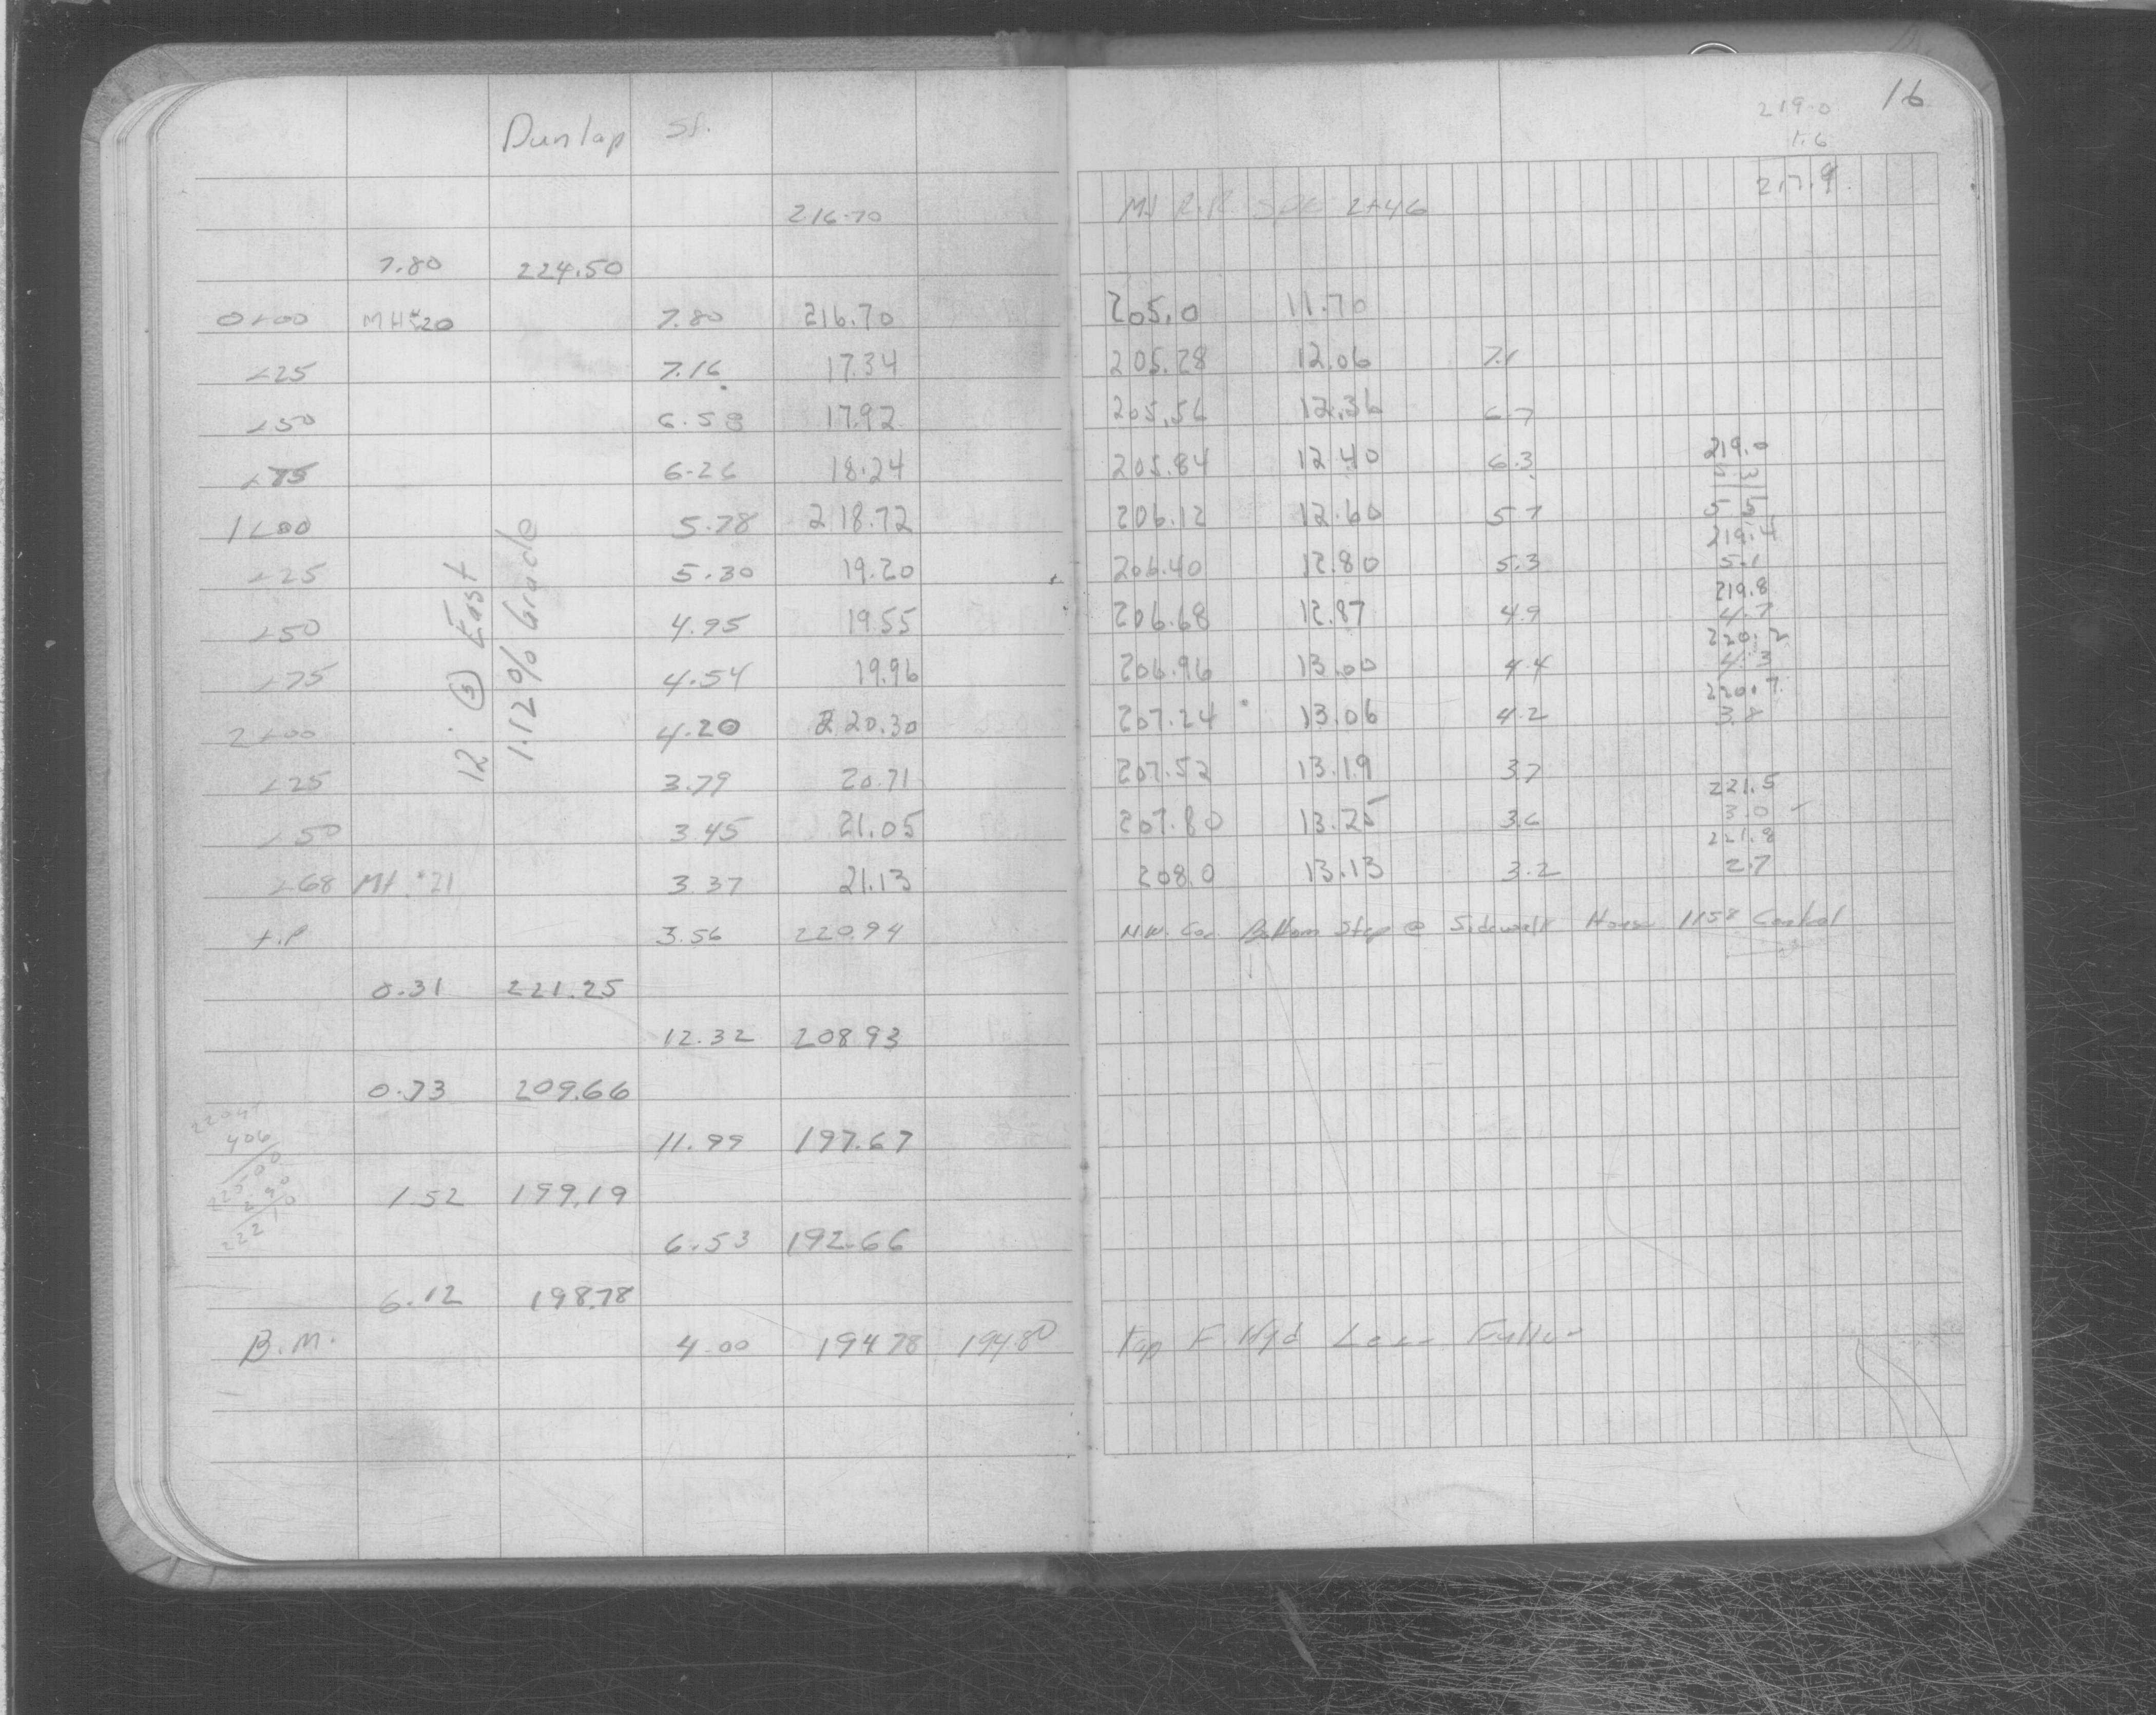 Dunlap St.
16
219.0
1.6
217.4
216.70
R.R. 2+46
7.80 224.50
0+00 MH #20 7.80 216.70 205.0 11.70
+25 7.16 17.34 205.28 12.06 7.1
+50 6.58 17.92 205.56 12.36 6.7
+75 6.26 18.24 205.84 12.40 6.3 219.0
1+00 5.78 218.72 206.12 12.60 5.7 5.5
219.4
+25 5.30 19.20 206.40 12.80 5.3 5.1
219.8
+50 4.95 19.55 206.68 12.87 4.9 4.7
220.2
+75 4.54 19.96 206.96 13.00 4.4 4.3
220.7
2+00 4.20 220.30 207.24 13.06 4.2 3.8
+25 3.79 20.71 207.52 13.19 3.7
221.5
+50 3.45 21.05 207.80 13.25 3.6 3.0
221.8
+68 MH #21 3.37 21.13 208.0 13.13 3.2 2.7
12" S East
1.12% Grade
t.P 3.56 220.94 N.W. Cor. Bottom Step @ Sidewalk House 1158 Central
0.31 221.25
12.32 208.93
0.73 209.66
406
11.99 197.67
225.00
2.90
222.10
1.52 199.19
6.53 192.66
6.12 198.78
B.M. 4.00 194.78 194.80 Top F. Hyd Lex Fuller